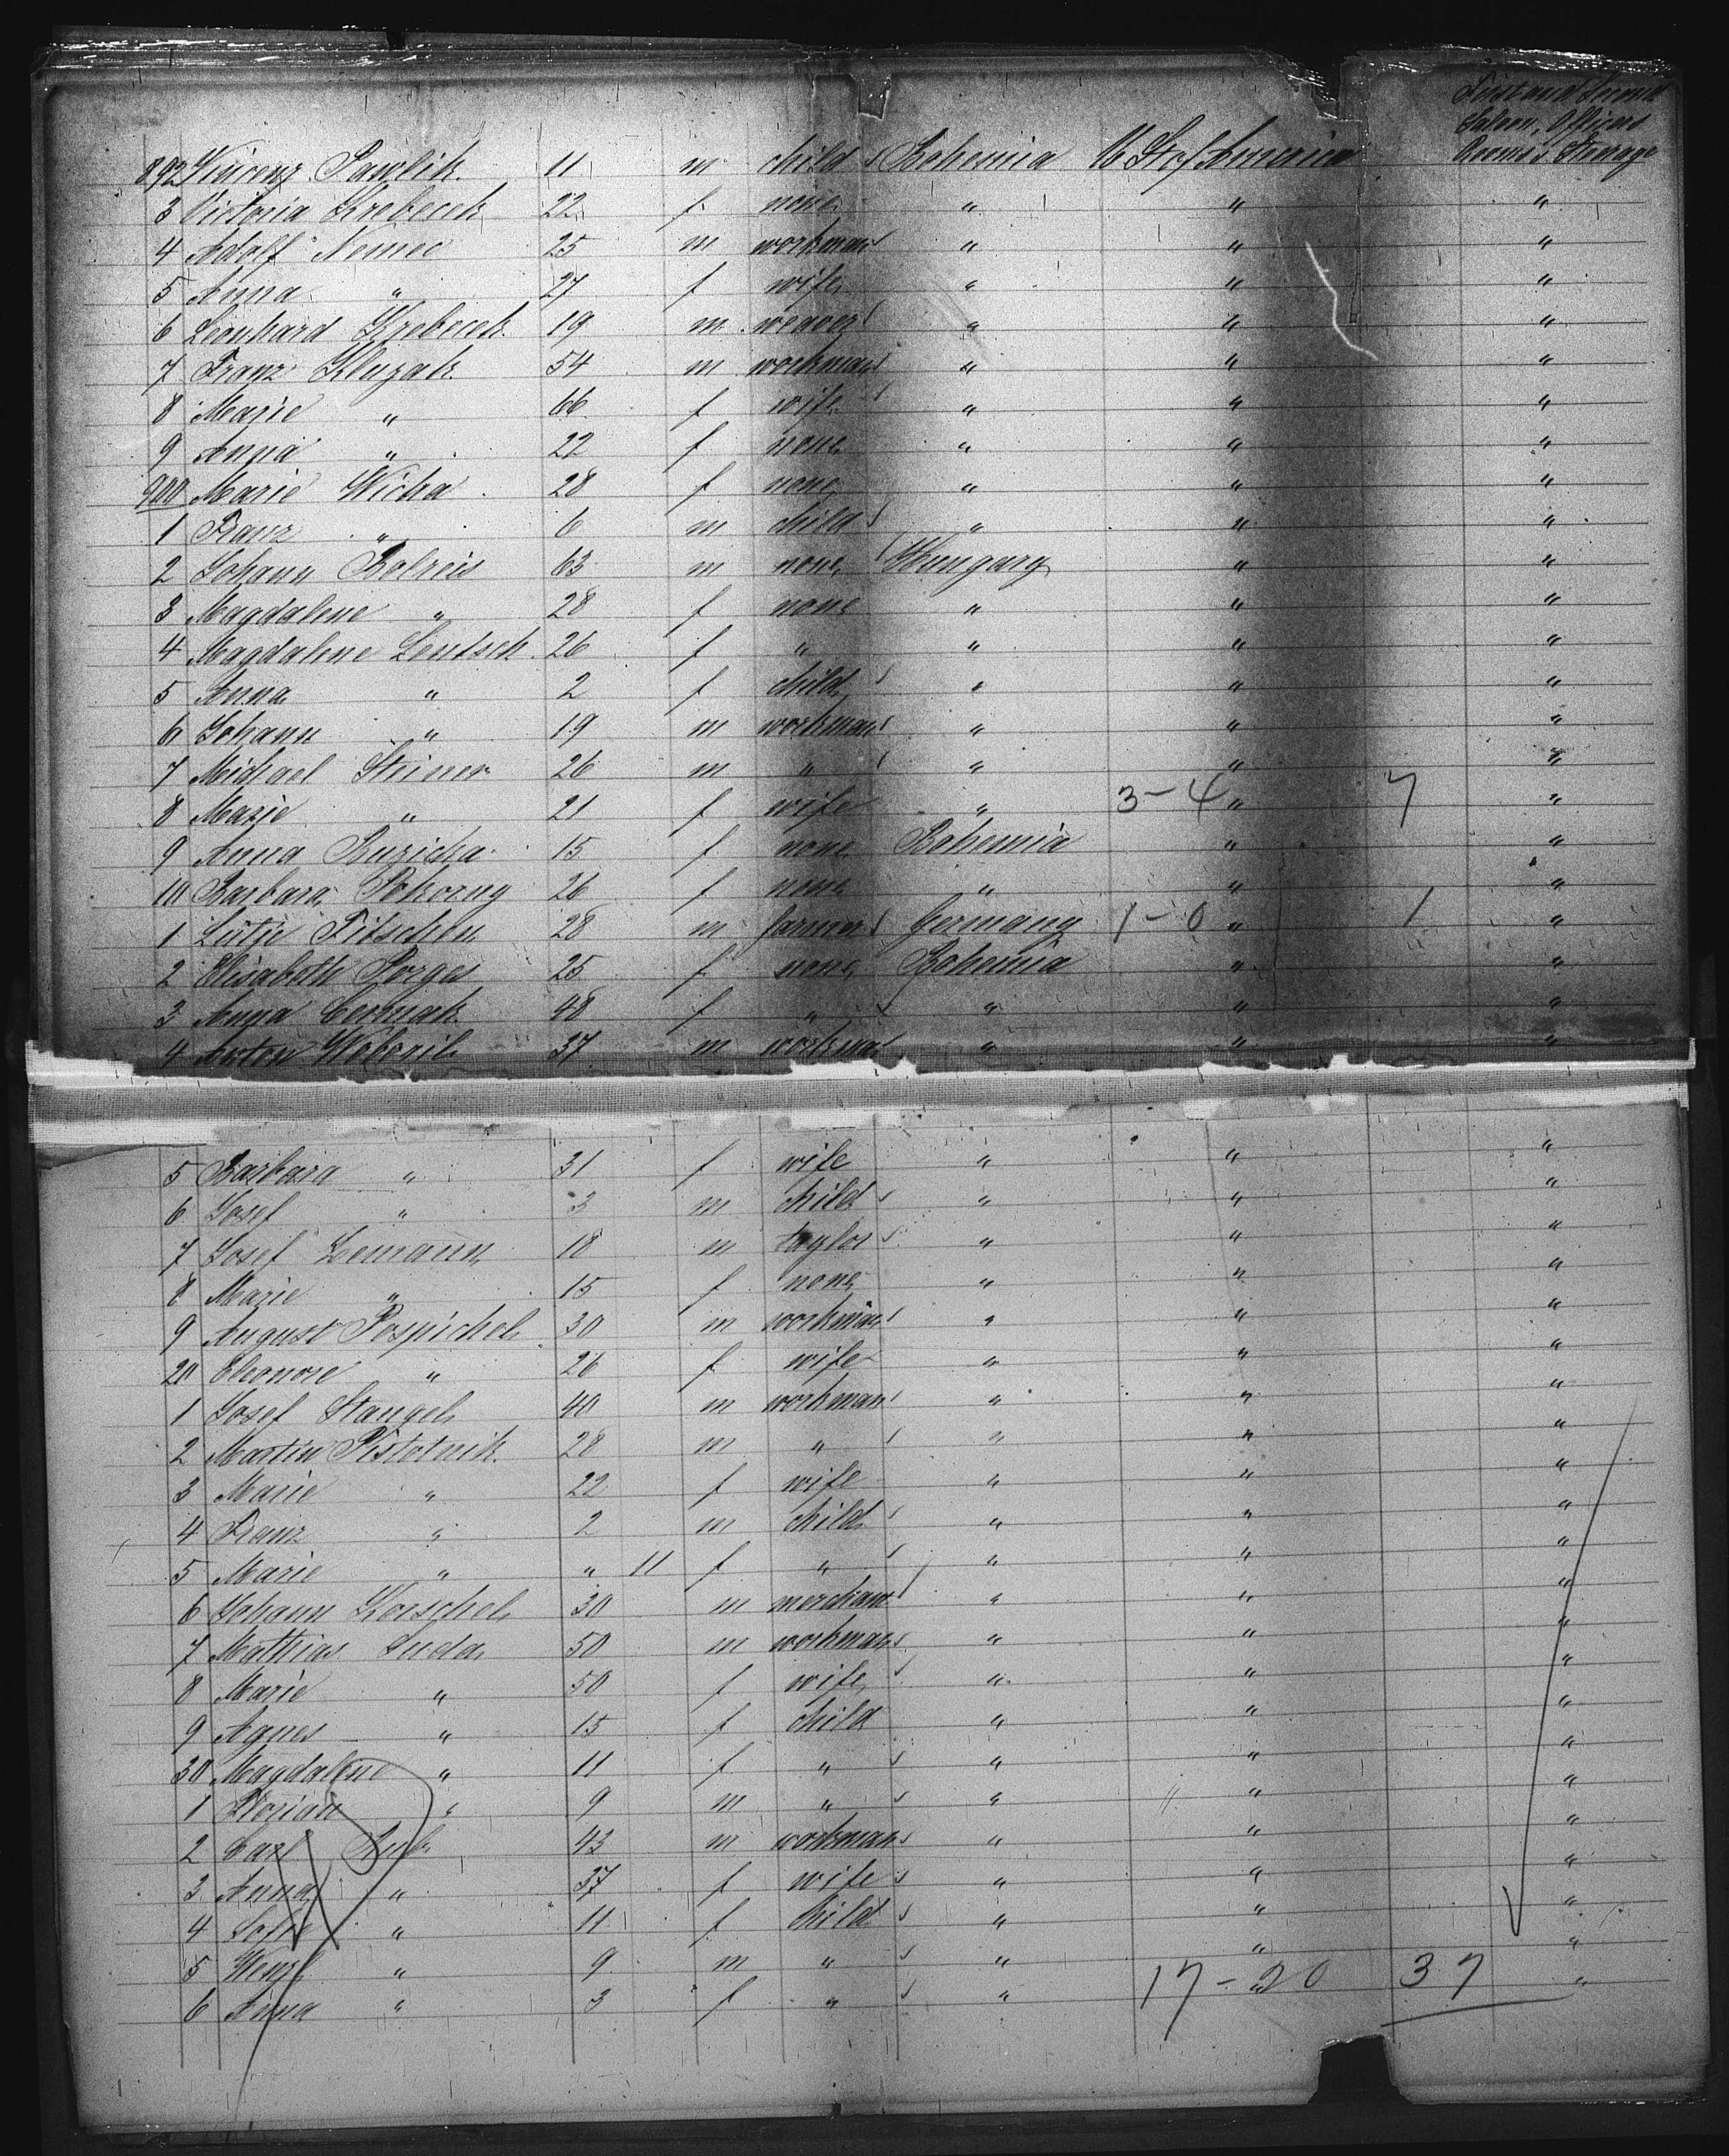 First and Second
Saloon, Officers
Rooms & Steerage
892 Vincenz Pawlik 11 m child Bohemia U St of America
3 Victoria Hrebecek 22 f none " " "
4 Adolf Nemec 25 m workman " " "
5 Anna " 27 f wife " " "
6 Leonhard Hrebecek 19 m weaver " " "
7 Franz Kluzak 54 m workman " " "
8 Marie " 66 f wife " " "
9 Anna " 22 f none " " "
900 Marie Wicha 28 f none " " "
1 Franz " 6 m child " " "
2 Johann 63 m none Hungary " "
3 Magdalene " 28 f none " " "
4 Magdalene Lentsch 26 f " " " "
5 Anna " 2 f child " " "
6 Johann " 19 m workman " " "
7 Michael Steiner 26 m " " " "
8 Marie " 21 f wife " 3-4 " 7 "
9 Anna Ruzicka 15 f none Bohemia " "
10 Barbara Pokorny 26 f none " " "
1 Lütje Fitschen 28 m farmer Germany 1-0 " 1 "
2 Elisabeth Porges 25 f none Bohemia " "
3 Anna Cermak 48 f " " " "
4 Anton 37 m workman " " "
5 Barbara " 31 f wife " " "
6 Josef " 3 m child " " "
7 Josef Zemann 18 m taylor " " "
8 Marie " 15 f none " " "
9 August Pospichel 30 m workman " " "
20 Eleonore " 26 f wife " " "
1 Josef Stangel 40 m workman " " "
2 Martin Pistotnik 28 m " " " "
3 Marie " 22 f wife " " "
4 Franz " 2 m child " " "
5 Marie " " 11 f " " " "
6 Johann Korschel 30 m merchant " " "
7 Mathias Suda 50 m workman " " "
8 Marie " 50 f wife " " "
9 Agnes " 15 f child " " "
30 Magdalene " 11 f " " " "
1 Florian " 9 m " " " "
2 Carl 43 m workman " " "
3 Anna " 37 f wife " " "
4 Sofie " 11 f child " " "
5 Wenzl " 9 m " " " "
6 Anna " 3 f " " 17-20 37 "